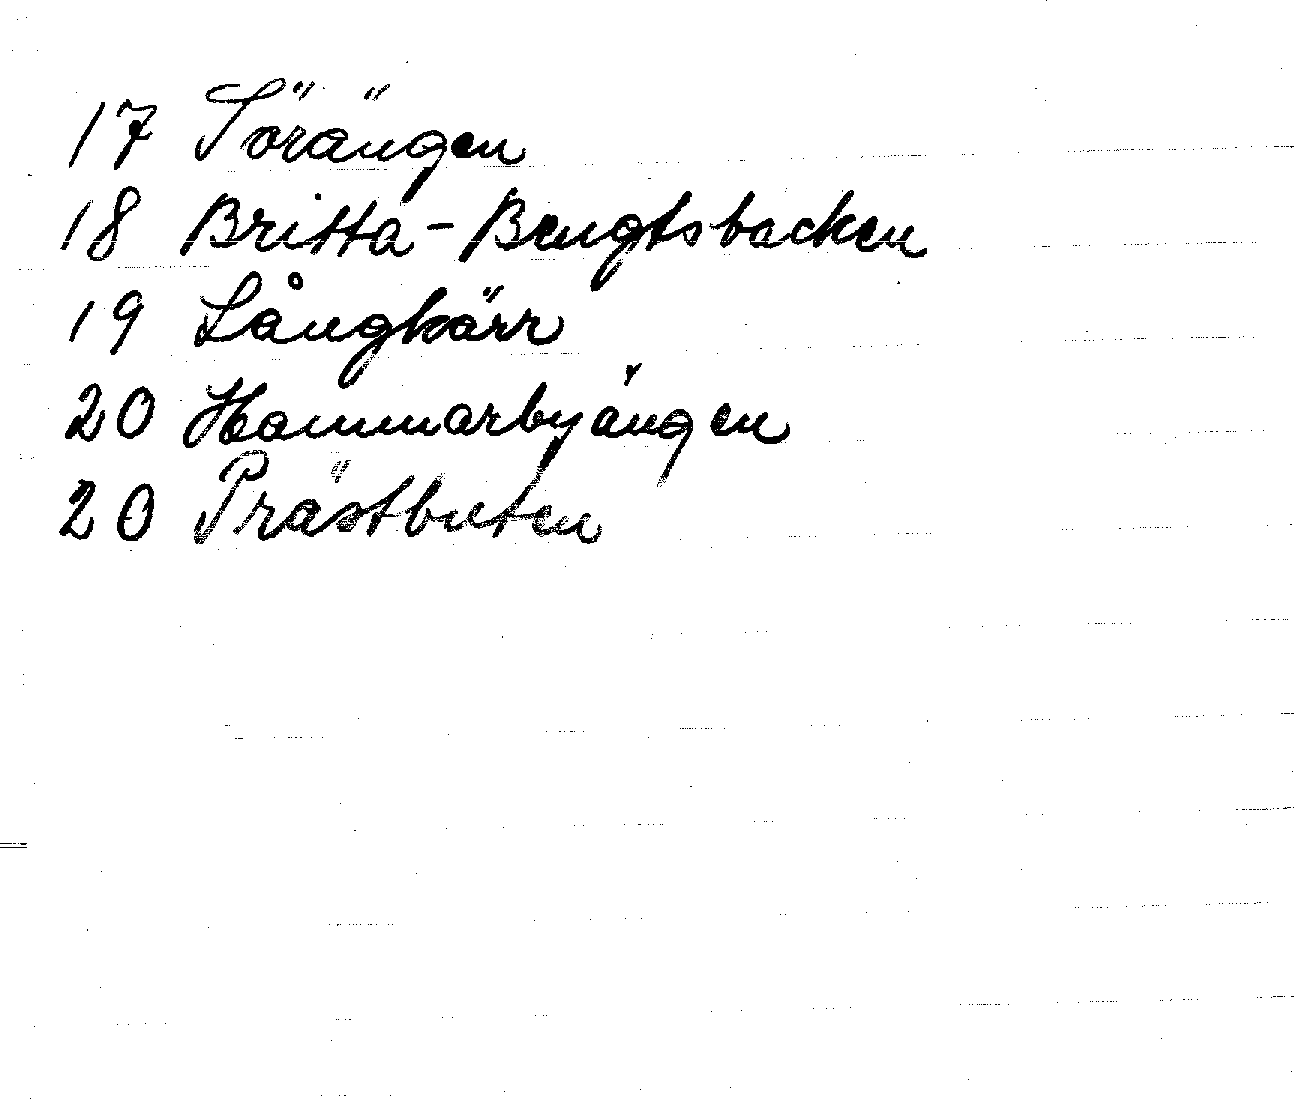 17 Sörängen
18 Britta-Bengtsbacken
19 Långkärr
20 Hammarbyängen
20 Prästbiten